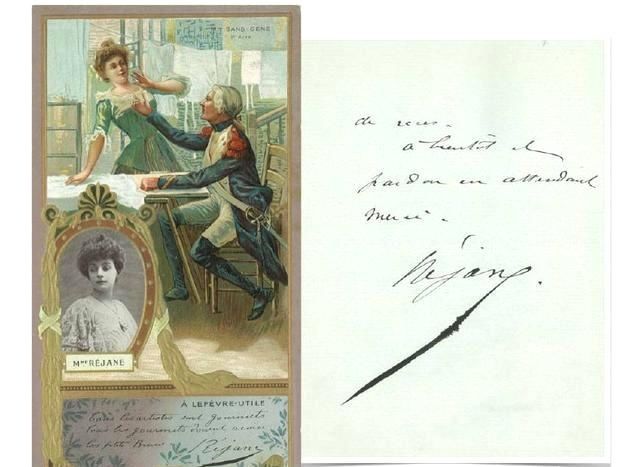 SANS-GÊNE
1er ACTE
MME RÉJANE
À LEFÈVRE-UTILE
Tous les artistes sont gourmets
Tous les gourmets doivent aimer
les petits Beurre
Réjane
de vous.
à bientôt et
pardon en attendant
merci.
Réjane.